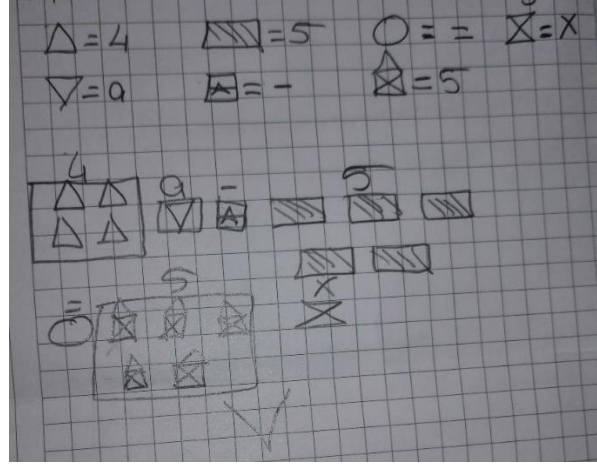 △=4 ▨=5 ○== ⧖=x
▽=a ⍓=- ⌂=5
4 a - 5
x
= 5